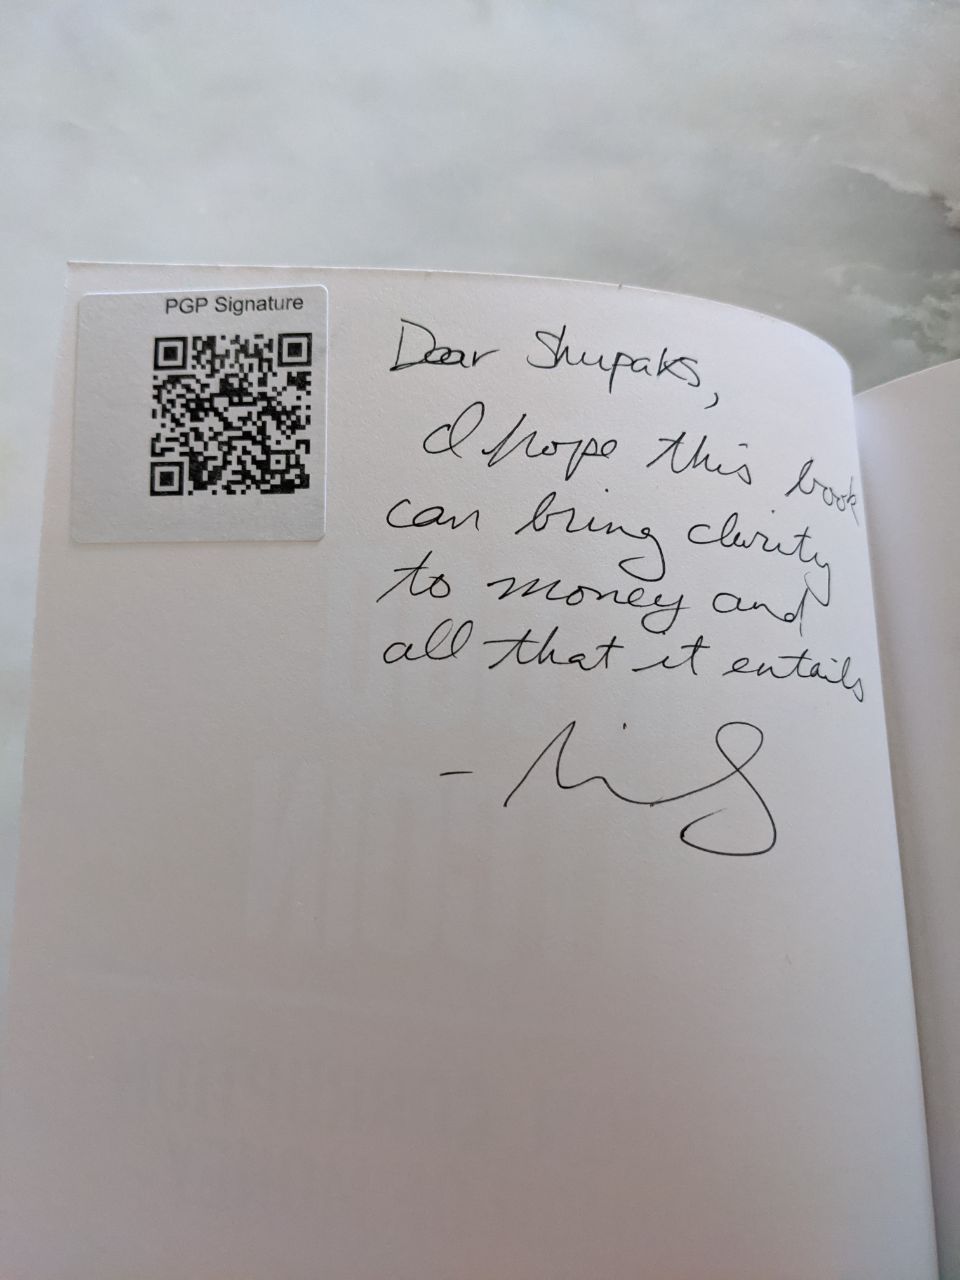 PGP Signature
Dear Shupaks,
I hope this book
can bring clarity
to money and
all that it entails